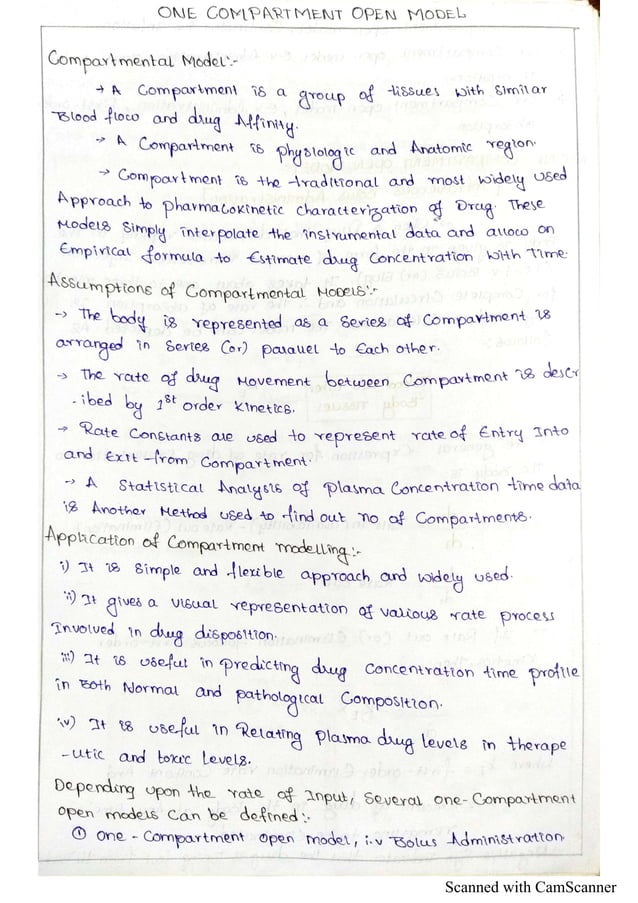 ONE COMPARTMENT OPEN MODEL
Compartmental Model:-
→ A Compartment is a group of tissues with similar
Blood flow and drug Affinity.
→ A Compartment is physiologic and Anatomic region.
→ Compartment is the traditional and most widely used
Approach to pharmacokinetic characterization of Drug. These
Models simply interpolate the instrumental data and allow on
Empirical formula to Estimate drug Concentration with Time.
Assumptions of Compartmental Models:-
→ The body is represented as a Series of Compartment is
arranged in Series (or) parallel to Each other.
→ The rate of drug Movement between Compartment is descr
-ibed by 1st order kinetics.
→ Rate Constants are used to represent rate of Entry Into
and Exit from Compartment.
→ A Statistical Analysis of Plasma Concentration time data
is Another Method used to find out no of Compartments.
Application of Compartment modelling:-
i) It is Simple and flexible approach and widely used.
ii) It gives a visual representation of various rate process
Involved in drug disposition.
iii) It is useful in predicting drug Concentration time profile
in Both Normal and pathological Composition.
iv) It is useful in Relating Plasma drug levels in therape
-utic and toxic Levels.
Depending upon the rate of Input, Several one-Compartment
open models can be defined:-
① one-Compartment open model, i.v Bolus Administration
Scanned with CamScanner